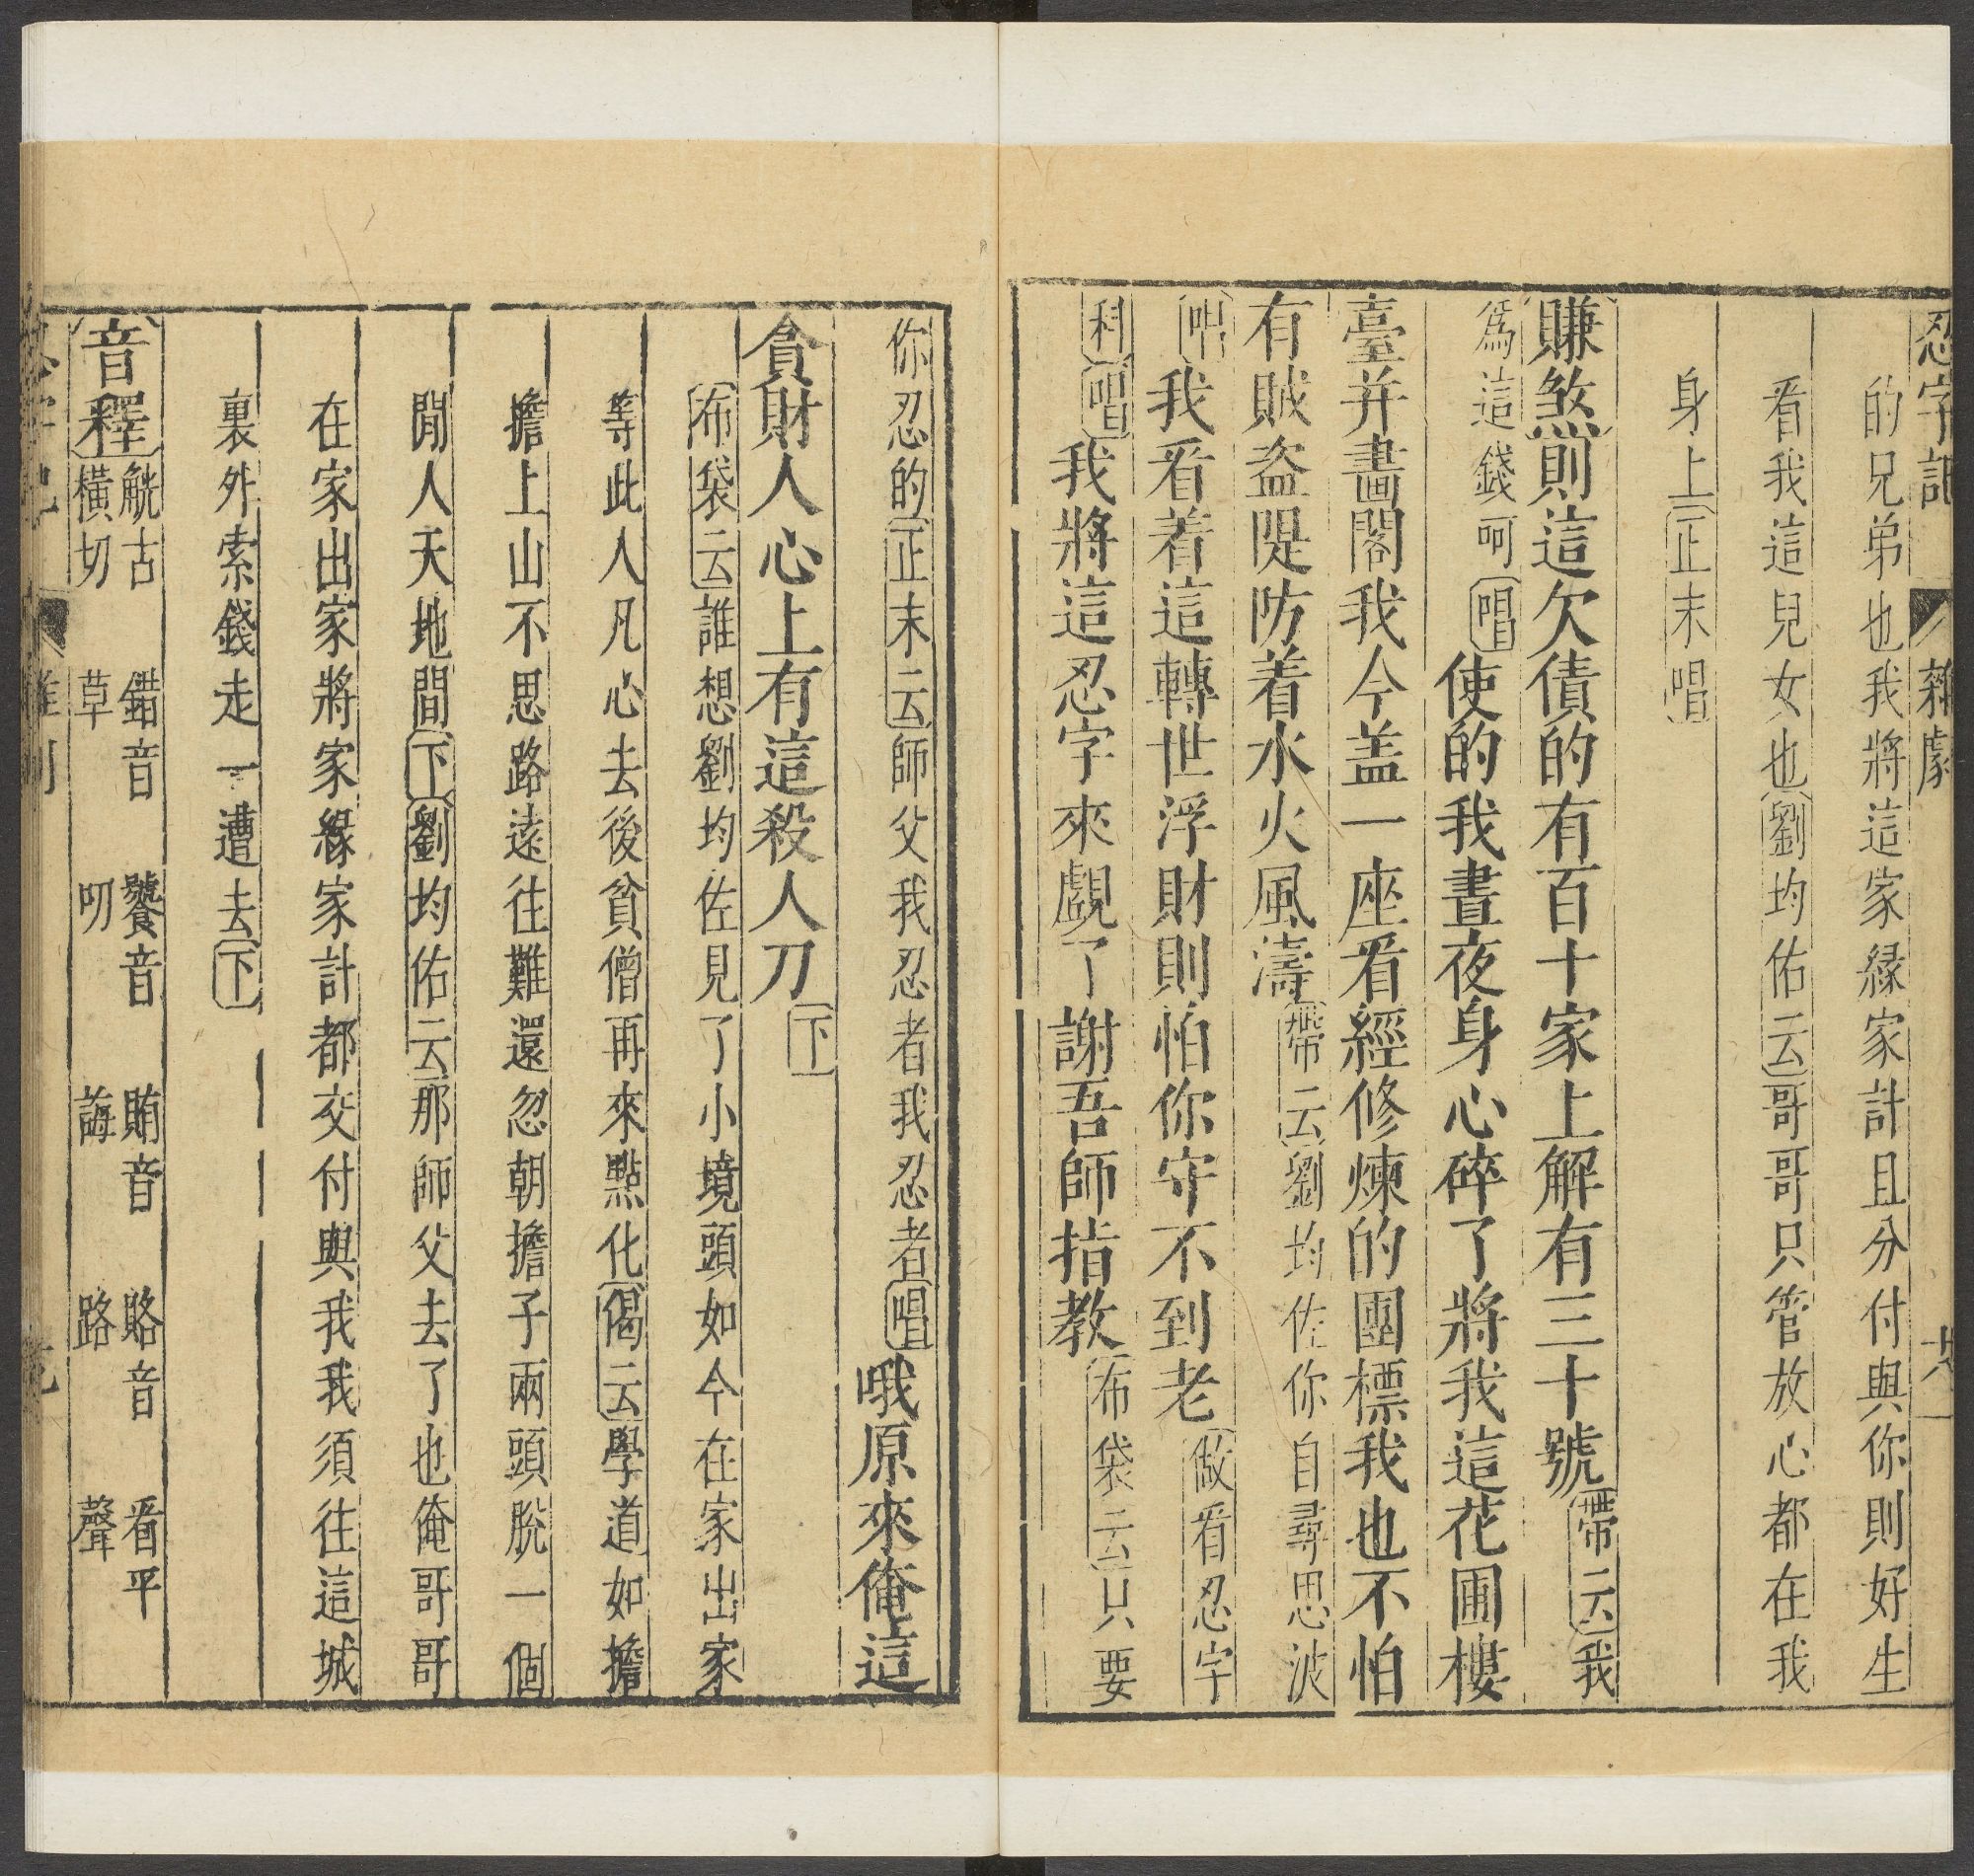 忍字記 雜劇 十八
的兄弟也我將這家緣家計且分付與你則好生
看我這兒女也劉均佑云哥哥只管放心都在我
身上正末唱
賺煞則這欠債的有百十家上解有三十號帶云我
爲這錢呵唱使的我晝夜身心碎了將我這花圃樓
臺并畵閣我今盖一座看經修煉的團標我也不怕
有賊盗隄防着水火風濤帶云劉均佐你自尋思波
唱我看着這轉世浮財則怕你守不到老做看忍字
科唱我將這忍字來覷了謝吾師指教布袋云只要
你忍的正末云師父我忍者我忍者唱哦原來俺這
貪財人心上有這殺人刀下
布袋云誰想劉均佐見了小境頭如今在家出家
等此人凡心去後貧僧再來點化偈云學道如擔
擔上山不思路遠往難還忽朝擔子兩頭脫一個
閒人天地間下劉均佑云那師父去了也俺哥哥
在家出家將家緣家計都交付與我我須往這城
裏外索錢走一遭去下
音釋 觥古橫切 錯音草 饕音叨 賄音誨 賂音路 看平聲